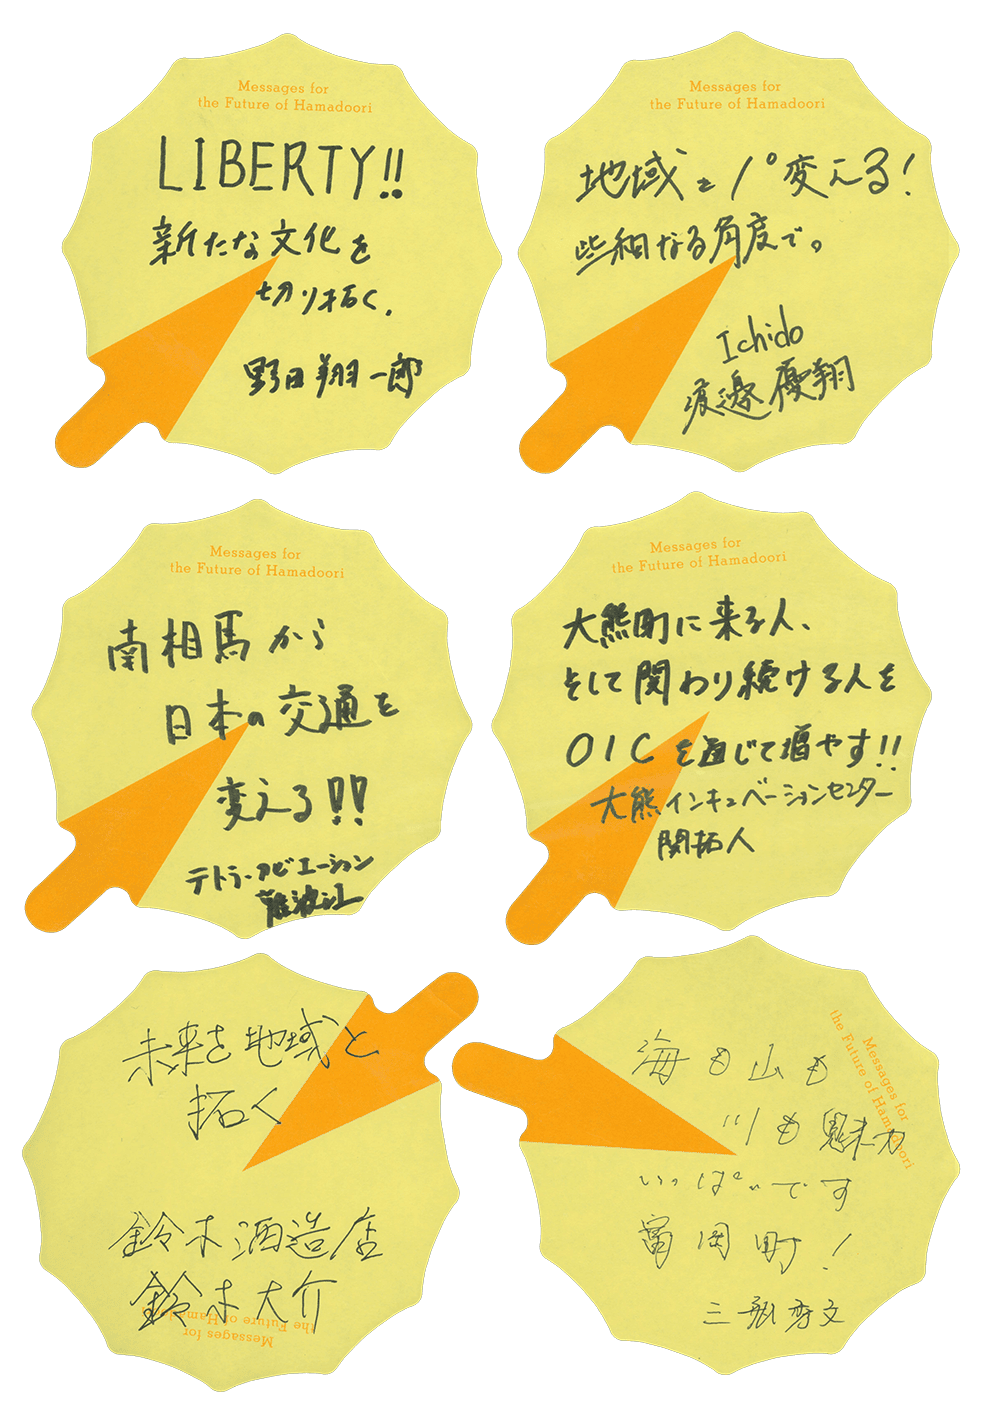 Messages for
the Future of Hamadoori
LIBERTY!!
新たな文化を
切り拓く.
野口翔一郎
Messages for
the Future of Hamadoori
地域を1°変える!
些細なる角度で。
Ichido
渡邉優翔
Messages for
the Future of Hamadoori
南相馬から
日本の交通を
変える!!
テトラ・アビエーション
Messages for
the Future of Hamadoori
大熊町に来る人、
そして関わり続ける人を
OICを通じて増やす!!
大熊インキュベーションセンター
関拓人
未来を地域と
拓く
鈴木酒造店
鈴木大介
Messages for
the Future of Hamadoori
Messages for
the Future of Hamadoori
海も山も
川も魅力
いっぱいです
富岡町!
三瓶秀文